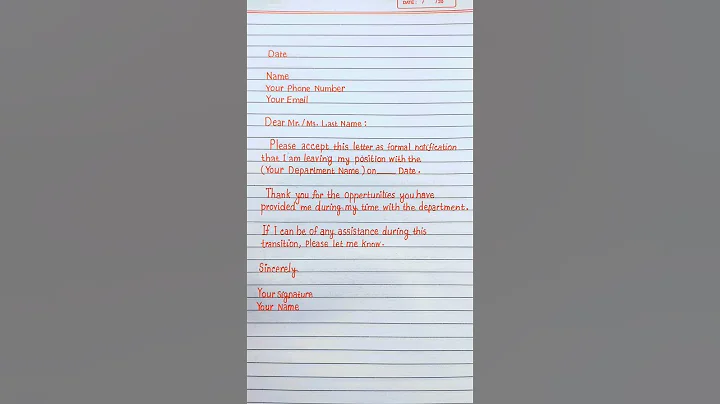 DATE: / /20
Date
Name
Your Phone Number
Your Email
Dear Mr./Ms. Last Name :
Please accept this letter as formal notification
that I am leaving my position with the
(Your Department Name) on____ Date.
Thank you for the opportunities you have
provided me during my time with the department.
If I can be of any assistance during this
transition, Please let me know.
Sincerely
Your Signature
Your Name